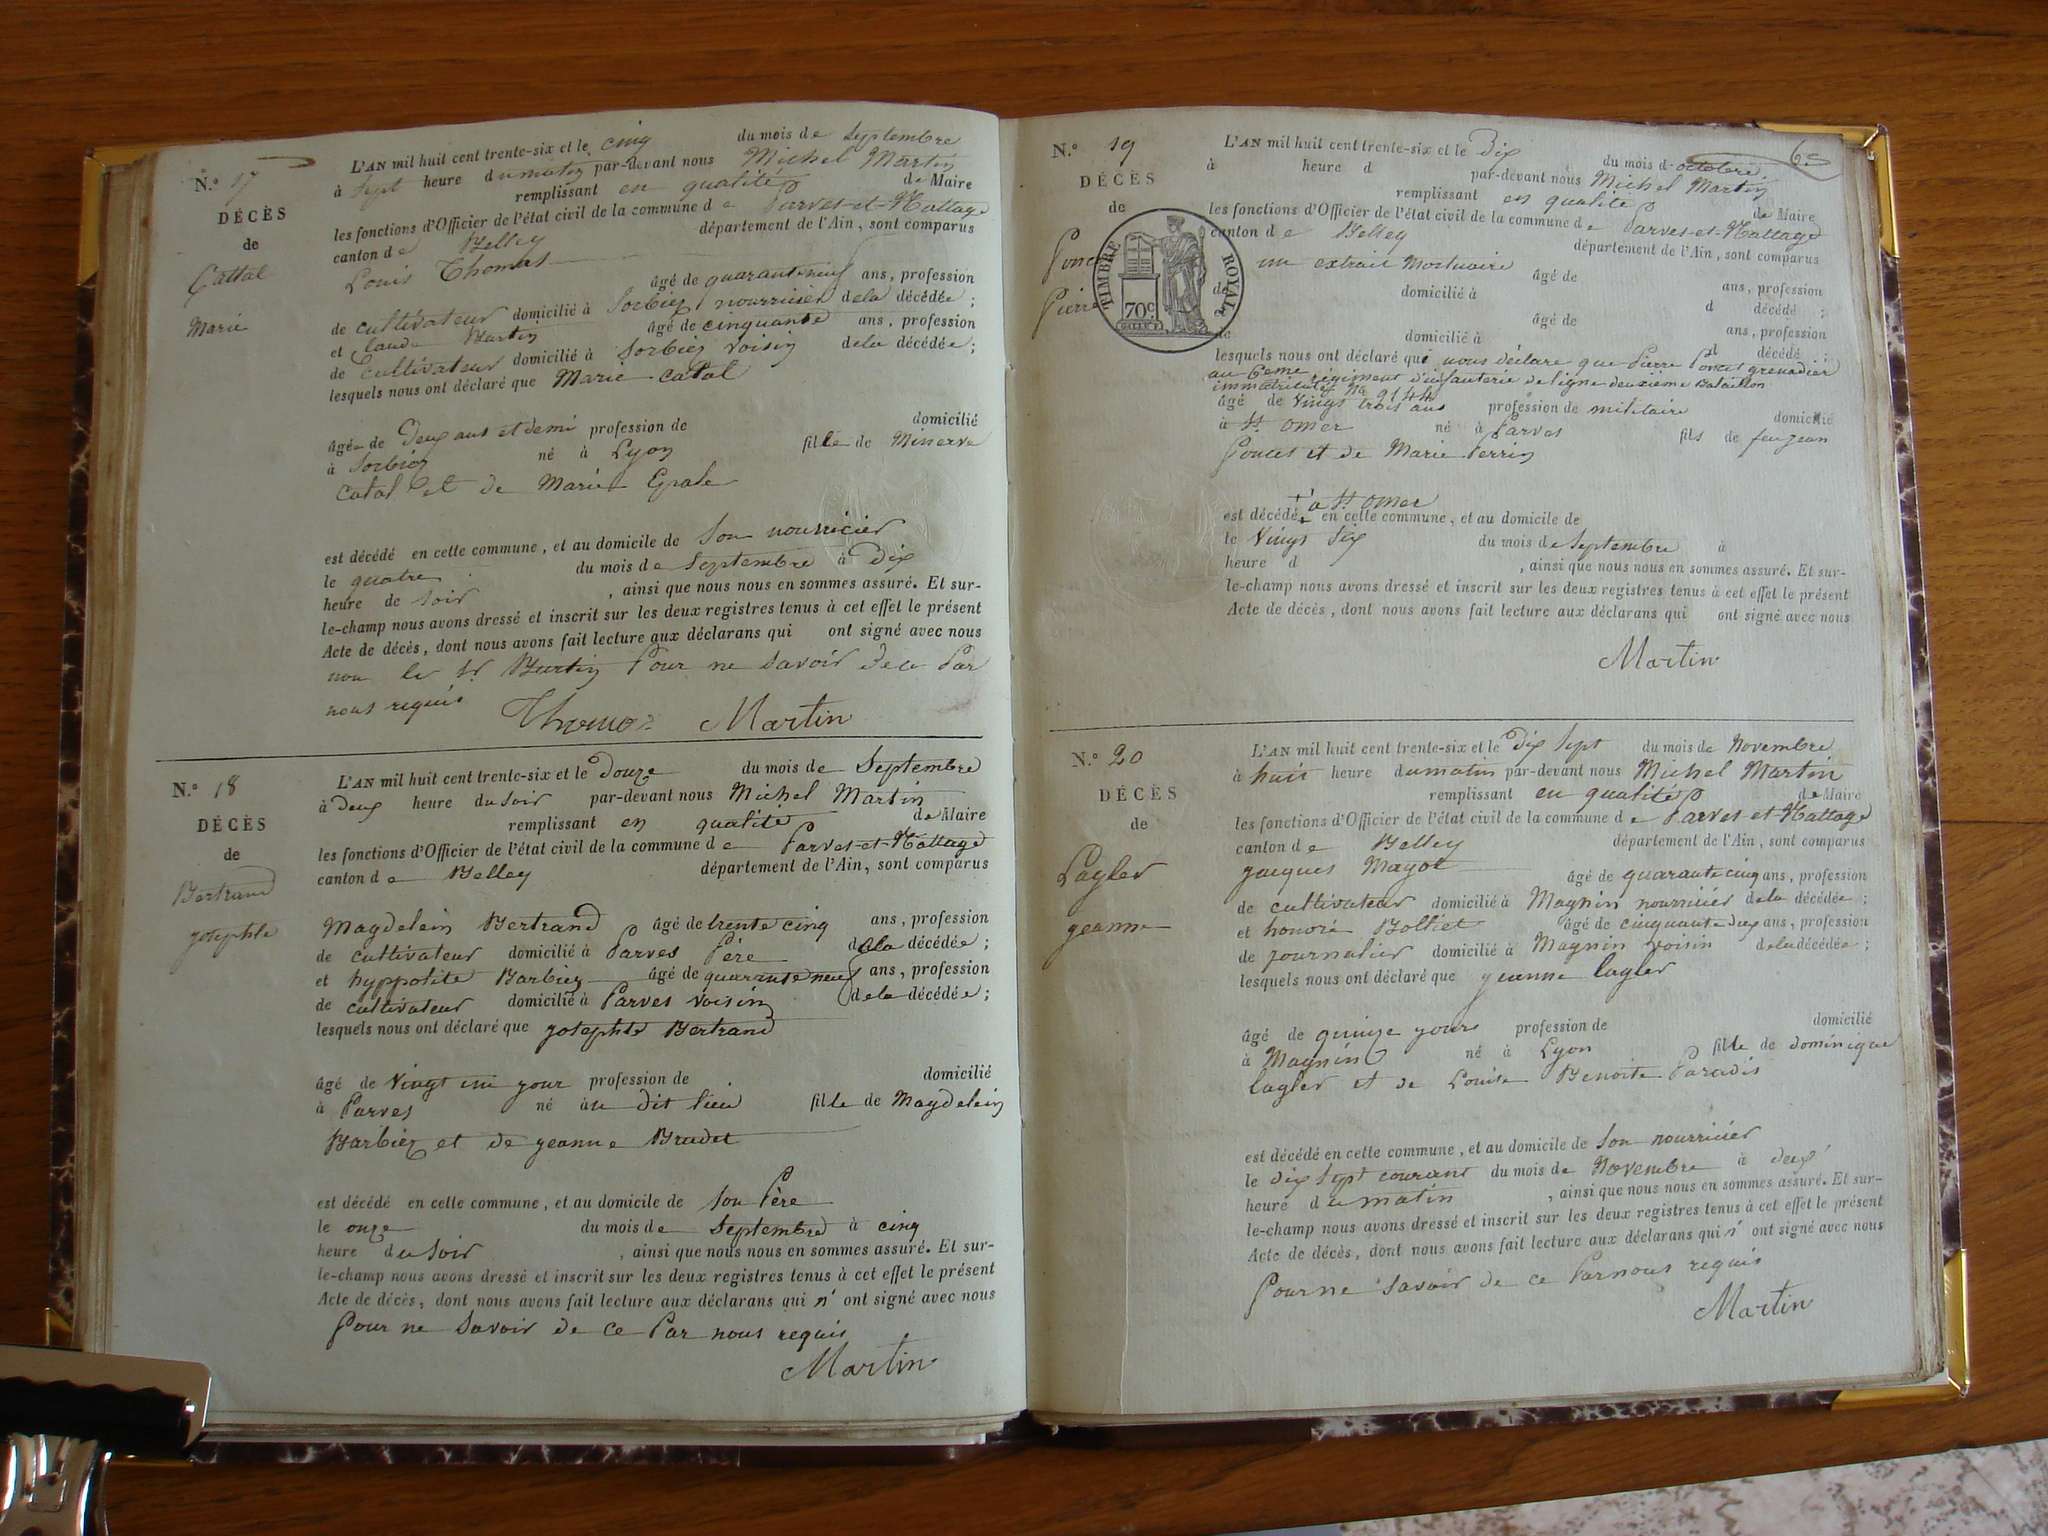 N.° 17
DÉCÈS
de
Cattal
Marie
L'AN mil huit cent trente-six et le cinq du mois de Septembre
à Sept heure du matin par-devant nous Michel Martin
remplissant en qualité de Maire
les fonctions d'Officier de l'état civil de la commune de Parves-et-Nattage
canton de Belley département de l'Ain, sont comparus
Louis Thomas âgé de quarante neuf ans, profession
de cultivateur domicilié à Sorbier nourricier de la décédée ;
et Claude Burtin âgé de cinquante ans, profession
de Cultivateur domicilié à Sorbier voisin de la décédée ;
lesquels nous ont déclaré que Marie Catal
âgée de Deux ans et demi profession de domicilié
à Sorbier né à Lyon fille de Minerve
Catal et de Marie
est décédé en cette commune, et au domicile de Son nourricier
le quatre du mois de Septembre à Dix
heure de soir , ainsi que nous nous en sommes assuré. Et sur-
le-champ nous avons dressé et inscrit sur les deux registres tenus à cet effet le présent
Acte de décès, dont nous avons fait lecture aux déclarans qui ont signé avec nous
non le Sr Burtin Pour ne savoir de ce Par
nous requis
Thomas Martin
N.° 18
DÉCÈS
de
Bertrand
josephte
L'AN mil huit cent trente-six et le Douze du mois de Septembre
à deux heure du soir par-devant nous Michel Martin
remplissant en qualité de Maire
les fonctions d'Officier de l'état civil de la commune de Parves-et-Nattage
canton de Belley département de l'Ain, sont comparus
Magdelein Bertrand âgé de trente cinq ans, profession
de cultivateur domicilié à Parves Père de la décédée ;
et hyppolite Barbier âgé de quarante neuf ans, profession
de cultivateur domicilié à Parves voisin de la décédée ;
lesquels nous ont déclaré que josephte Bertrand
âgé de Vingt un jour profession de domicilié
à Parves né au dit lieu fille de Magdelein
Barbier et de jeanne Brudet
est décédé en cette commune, et au domicile de son Père
le onze du mois de Septembre à cinq
heure du soir , ainsi que nous nous en sommes assuré. Et sur-
le-champ nous avons dressé et inscrit sur les deux registres tenus à cet effet le présent
Acte de décès, dont nous avons fait lecture aux déclarans qui n' ont signé avec nous
Pour ne Savoir de ce Par nous requis
Martin
6e
N.° 19
DÉCÈS
de
Poncet
Pierre
TIMBRE ROYAL
70c
L'AN mil huit cent trente-six et le Dix du mois d'octobre
à heure d par-devant nous Michel Martin
remplissant en qualité de Maire
les fonctions d'Officier de l'état civil de la commune de Parves-et-Nattage
canton de Belley département de l'Ain, sont comparus
un extrait Mortuaire âgé de ans, profession
de domicilié à d décédé ;
âgé de ans, profession
de domicilié à d décédé ;
lesquels nous ont déclaré qui nous déclare que Pierre Poncet grenadier
au 6eme régiment d'infanterie de ligne deuxième Bataillon
immatriculé No 9144
âgé de vingt trois ans profession de militaire domicilié
à St omer né à Parves fils de feu jean
Poncet et de Marie Perrin
+ à St omer
est décédé + en cette commune, et au domicile de
le Vingt Six du mois de Septembre à
heure d , ainsi que nous nous en sommes assuré. Et sur-
le-champ nous avons dressé et inscrit sur les deux registres tenus à cet effet le présent
Acte de décès, dont nous avons fait lecture aux déclarans qui ont signé avec nous
Martin
N.° 20
DÉCÈS
de
Lagler
jeanne
L'AN mil huit cent trente-six et le Dix Sept du mois de Novembre
à huit heure du matin par-devant nous Michel Martin
remplissant en qualité de Maire
les fonctions d'Officier de l'état civil de la commune de Parves-et-Nattage
canton de Belley département de l'Ain, sont comparus
jacques Mayot âgé de quarante cinq ans, profession
de cultivateur domicilié à Magnin nourricier de la décédée ;
et honoré Bolliet âgé de cinquante deux ans, profession
de journalier domicilié à Magnin voisin de la décédée ;
lesquels nous ont déclaré que jeanne lagler
âgé de quinze jours profession de domicilié
à Magnin né à Lyon fille de dominique
lagler et de Louise Benoite Paradis
est décédé en cette commune, et au domicile de son nourricier
le dix sept courant du mois de Novembre à deux
heure du matin , ainsi que nous nous en sommes assuré. Et sur-
le-champ nous avons dressé et inscrit sur les deux registres tenus à cet effet le présent
Acte de décès, dont nous avons fait lecture aux déclarans qui n' ont signé avec nous
Pour ne savoir de ce Par nous requis
Martin